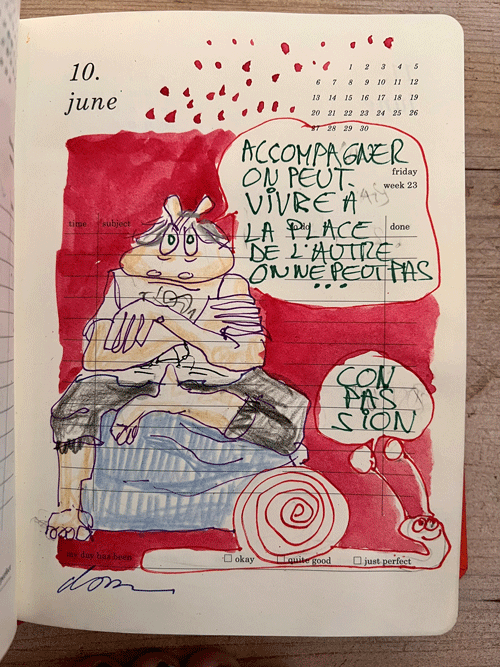 10.
june
1 2 3 4 5
6 7 8 9 10 11 12
13 14 15 16 17 18 19
20 21 22 23 24 25 26
27 28 29 30
friday
week 23
ACCOMPAGNER
ON PEUT.
VIVRE A
LA PLACE
DE L'AUTRE
ON NE PEUT PAS
...
time subject to do done
CON
PAS
SION
my day has been okay quite good just perfect